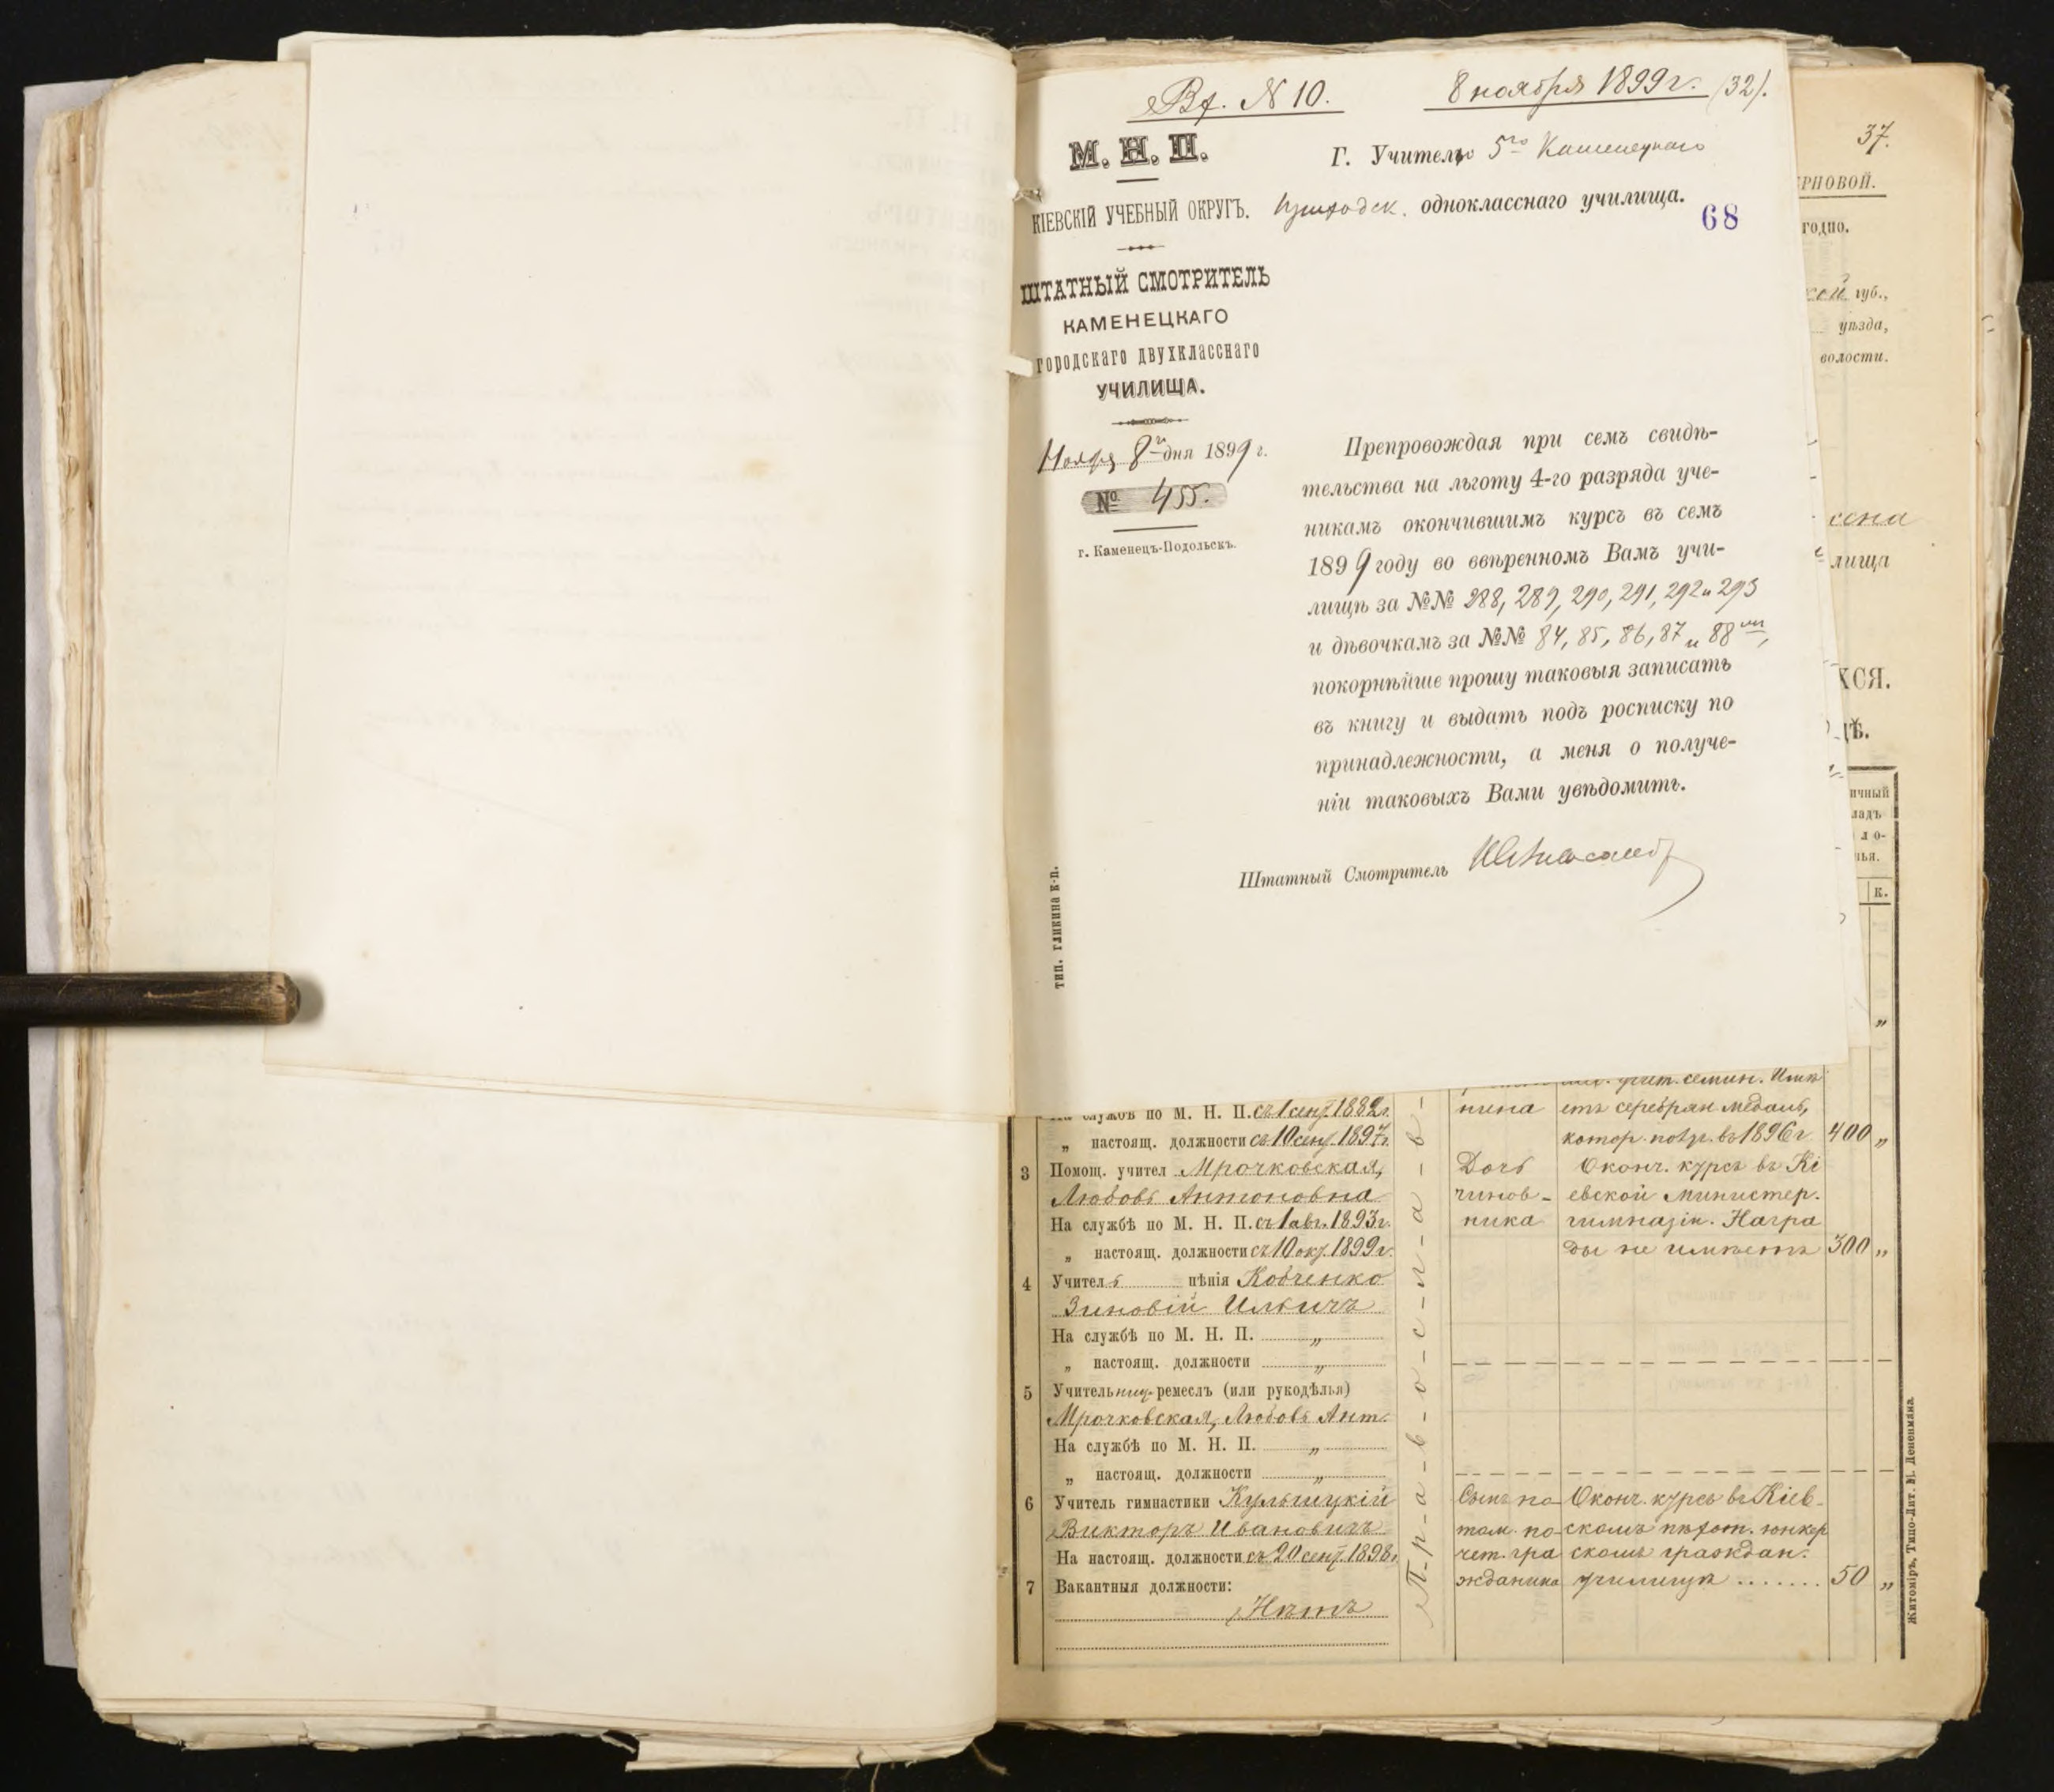 Вх. № 10.
8 ноября 1899 г. (32).
М. Н. П.
КІЕВСКІЙ УЧЕБНЫЙ ОКРУГЪ.
ШТАТНЫЙ СМОТРИТЕЛЬ
КАМЕНЕЦКАГО
городскаго двухкласснаго
УЧИЛИЩА.
Ноября 8 дня 1899 г.
№ 455.
г. Каменецъ-Подольскъ.
Г. Учителю 5го Каменецкаго
приходск. однокласснаго училища.
68
Препровождая при семъ свидѣ-
тельства на льготу 4-го разряда уче-
никамъ окончившимъ курсъ въ семъ
1899 году во ввѣренномъ Вамъ учи-
лищѣ за №№ 288, 289, 290, 291, 292 и 293
и дѣвочкамъ за №№ 84, 85, 86, 87 и 88
покорнѣйше прошу таковыя записать
въ книгу и выдать подъ росписку по
принадлежности, а меня о получе-
ніи таковыхъ Вами увѣдомить.
Штатный Смотритель
тип. гликина к-п.
37.
РНОВОЙ.
годно.
кой губ.,
уѣзда,
волости.
лища
ХСЯ.
ДѢ.
ичный
ладъ
ло-
нья.
к.
„
учит. семин. Имѣ
На службѣ по М. Н. П. съ 1 сент. 1882 г. нина етъ серебрян медаль,
„ настоящ. должности съ 10 сент. 1897 г. котор. получ. въ 1896 г 400 „
3 Помощ. учител Мрочковская, Дочь Оконч. курсъ въ Кі
Любовь Антоновна чинов- евской министер.
На службѣ по М. Н. П. съ 1 авг. 1893 г. ника гимназіи. Награ
„ настоящ. должности съ 10 окт. 1899 г. ды не имѣетъ 300 „
4 Учитель пѣнія Кобченко
Зиновій Ильичъ
На службѣ по М. Н. П. „
„ настоящ. должности „
5 Учительниц. ремеслъ (или рукодѣлья)
Мрочковская, Любовь Ант.
На службѣ по М. Н. П. „
„ настоящ. должности „
6 Учитель гимнастики Кульчицкій Сынъ по- Оконч. курсъ въ Кіев-
Викторъ Ивановичъ том. по- скомъ пѣхот. юнкер
На настоящ. должности съ 20 сент. 1898 г. чет. гра скомъ граждан.
7 Вакантныя должности: жданина училищѣ ....... 50 „
Нѣтъ
П-р-а-в-о-с-л-а-в-
Житоміръ, Типо-Лит. Н. Дененмана